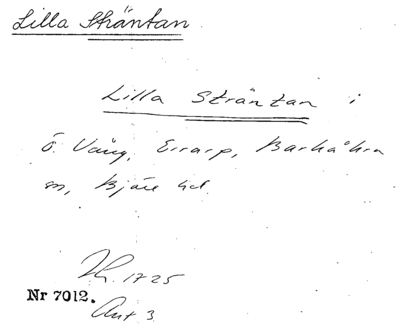 Lilla Sträntan
Lilla Sträntan i
Ö. Vång, Errarp, Barkåkra
sn, Bjäre hd.
Hr. 1725
Nr 7012.
Akt 3